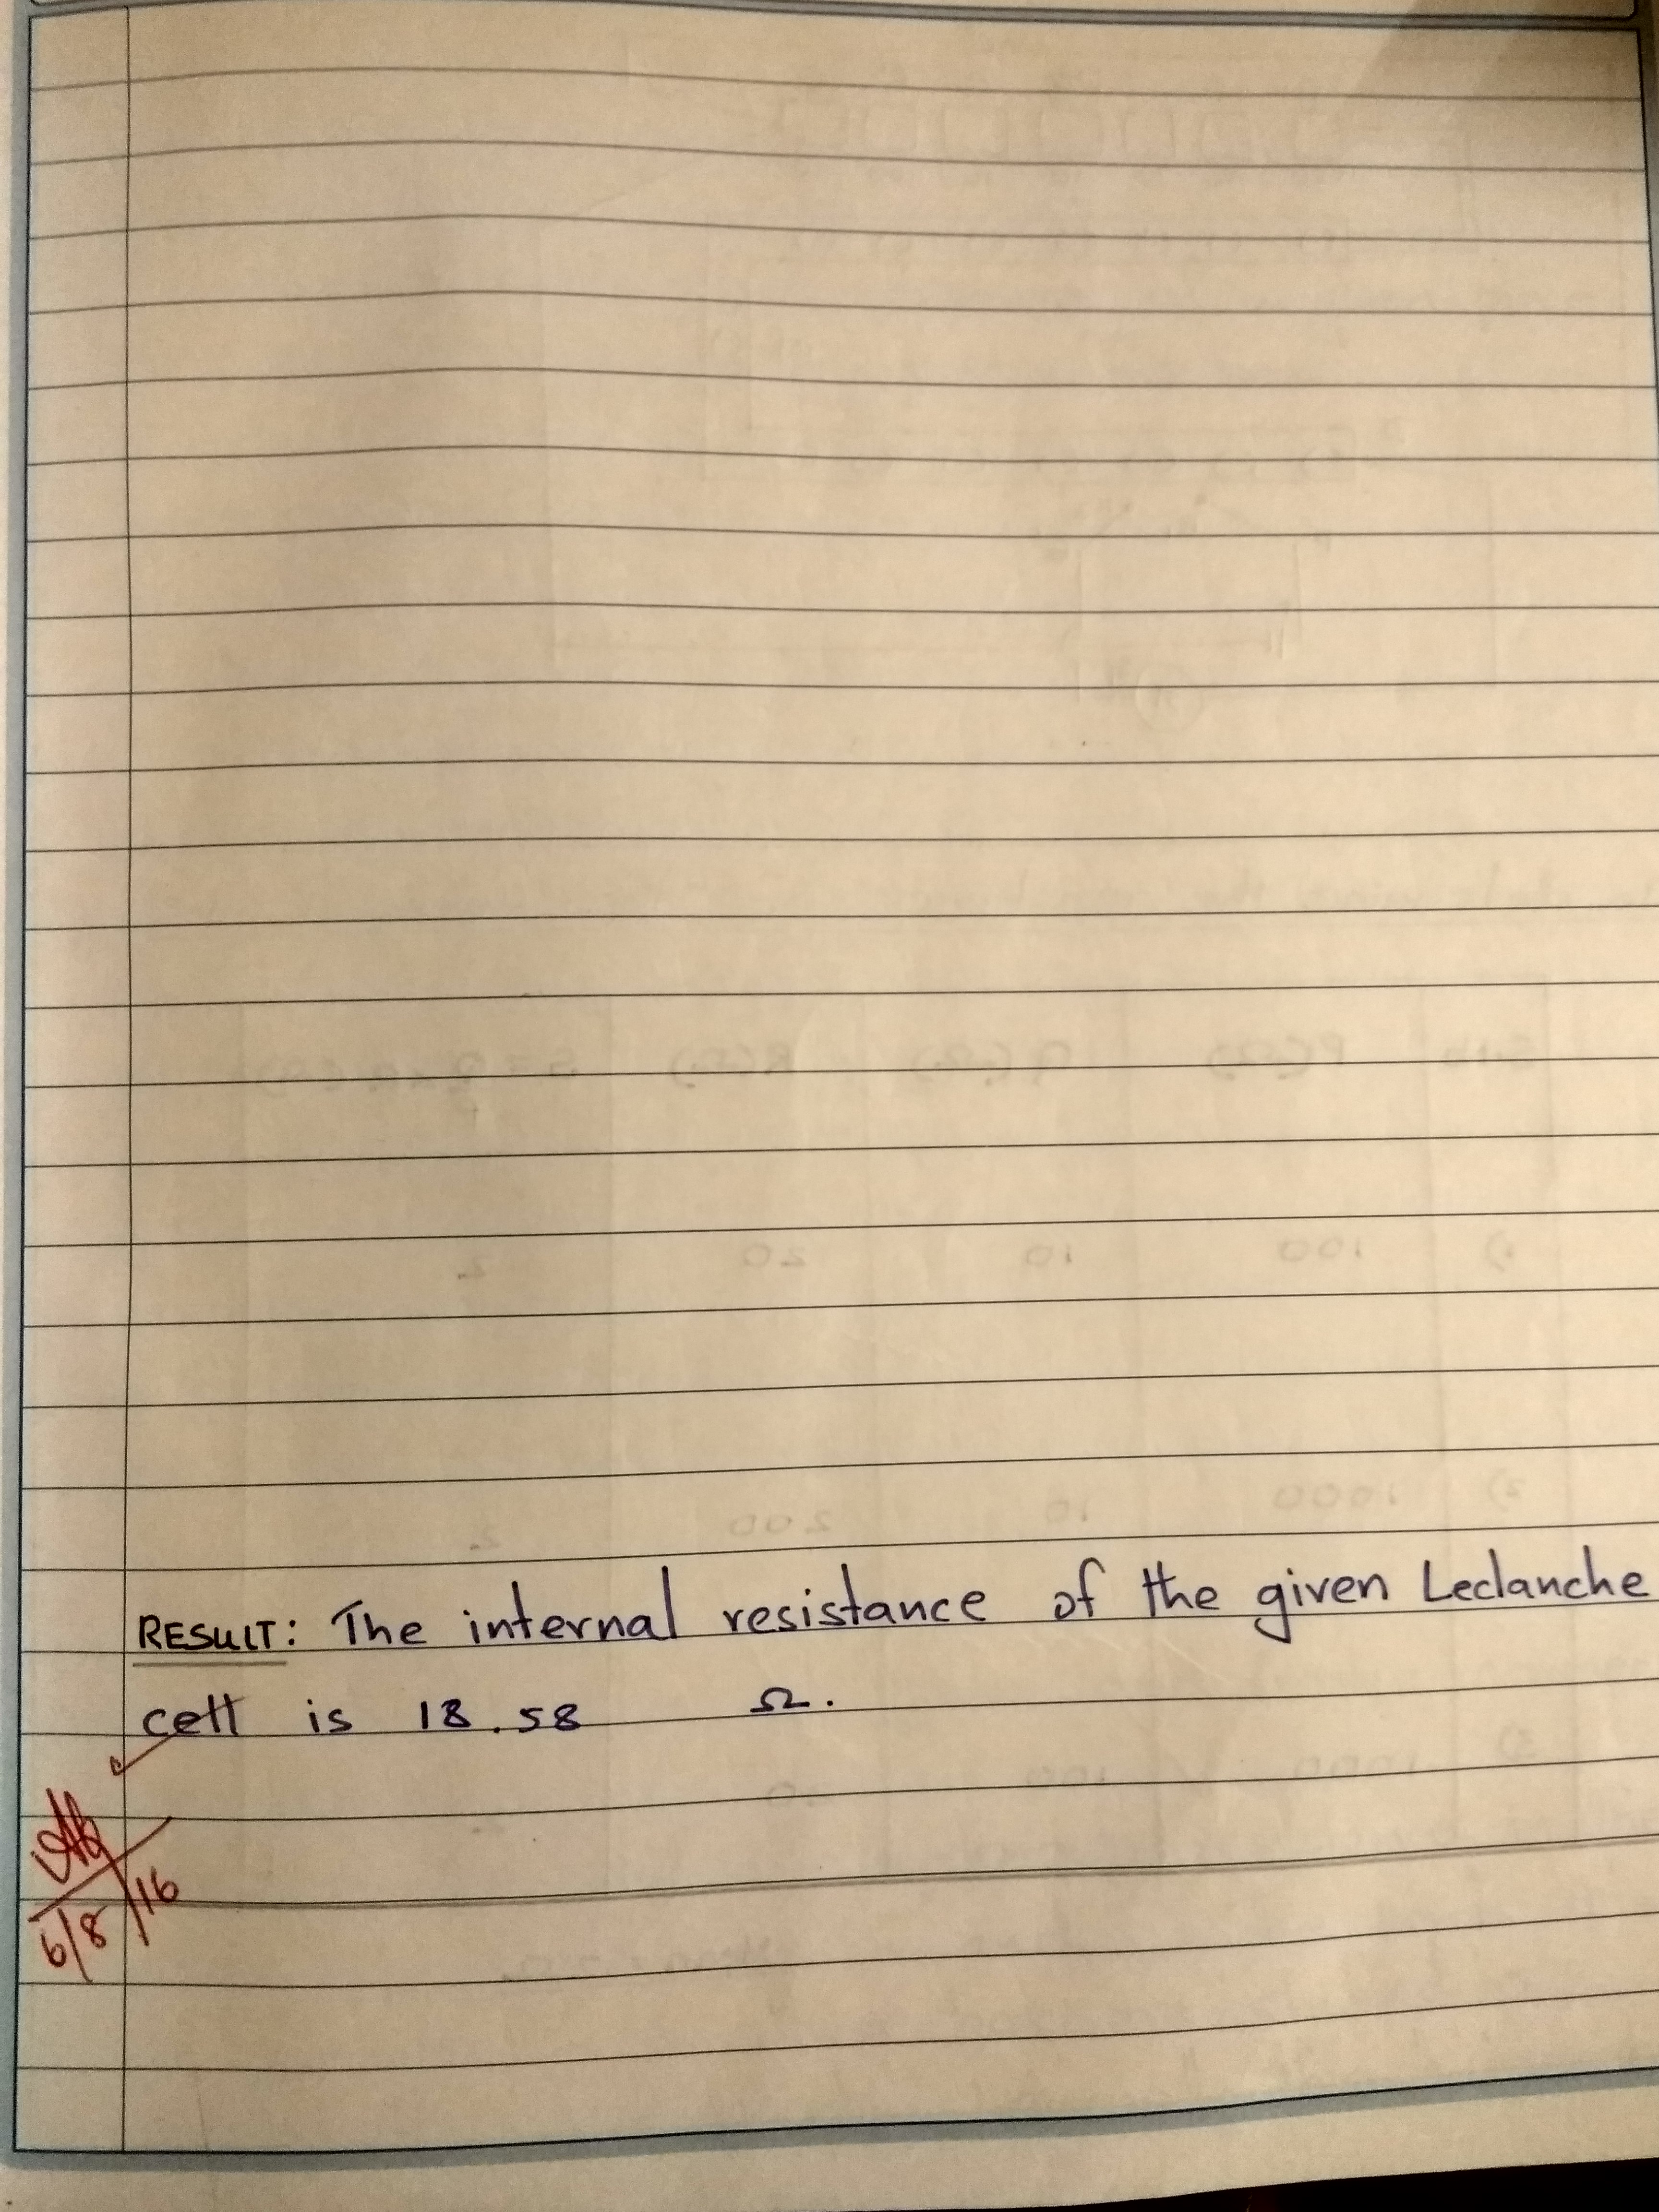 RESULT: The internal resistance of the given Leclanche
cell is 18.58 Ω.
6/8/16